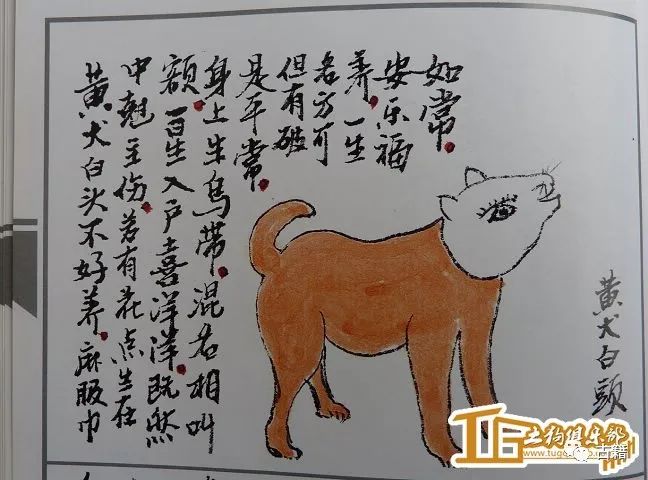 黄犬白头不好养.麻服巾
中魁主伤.若有花点生在
额.百生入户喜洋洋.既然
身上生乌带.混名相叫
是平常.
但有破
名方可
养.一生
安乐福
如常.
黄犬白頭
TG土狗俱乐部
古籍